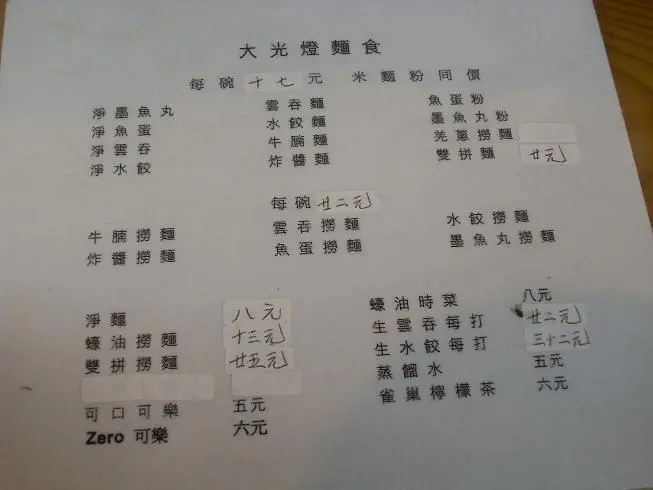 大光燈麵食
每碗十七元 米麵粉同價
淨墨魚丸 雲吞麵 魚蛋粉
淨魚蛋 水餃麵 墨魚丸粉
淨雲吞 牛腩麵 羌蔥撈麵
淨水餃 炸醬麵 雙拼麵 廿元
每碗廿二元
牛腩撈麵 雲吞撈麵 水餃撈麵
炸醬撈麵 魚蛋撈麵 墨魚丸撈麵
淨麵 八元
蠔油撈麵 十三元
雙拼撈麵 廿五元
可口可樂 五元
Zero 可樂 六元
蠔油時菜 八元
生雲吞每打 廿二元
生水餃每打 三十二元
蒸餾水 五元
雀巢檸檬茶 六元